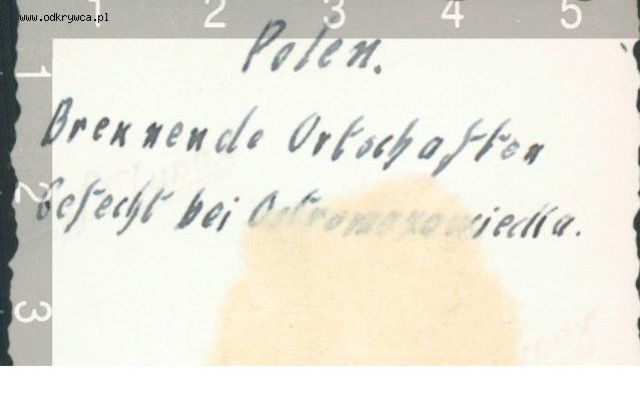 www.odkrywca.pl
1 2 3 4 5
1
2
3
Polen.
Brennende Ortschaften
Gefecht bei